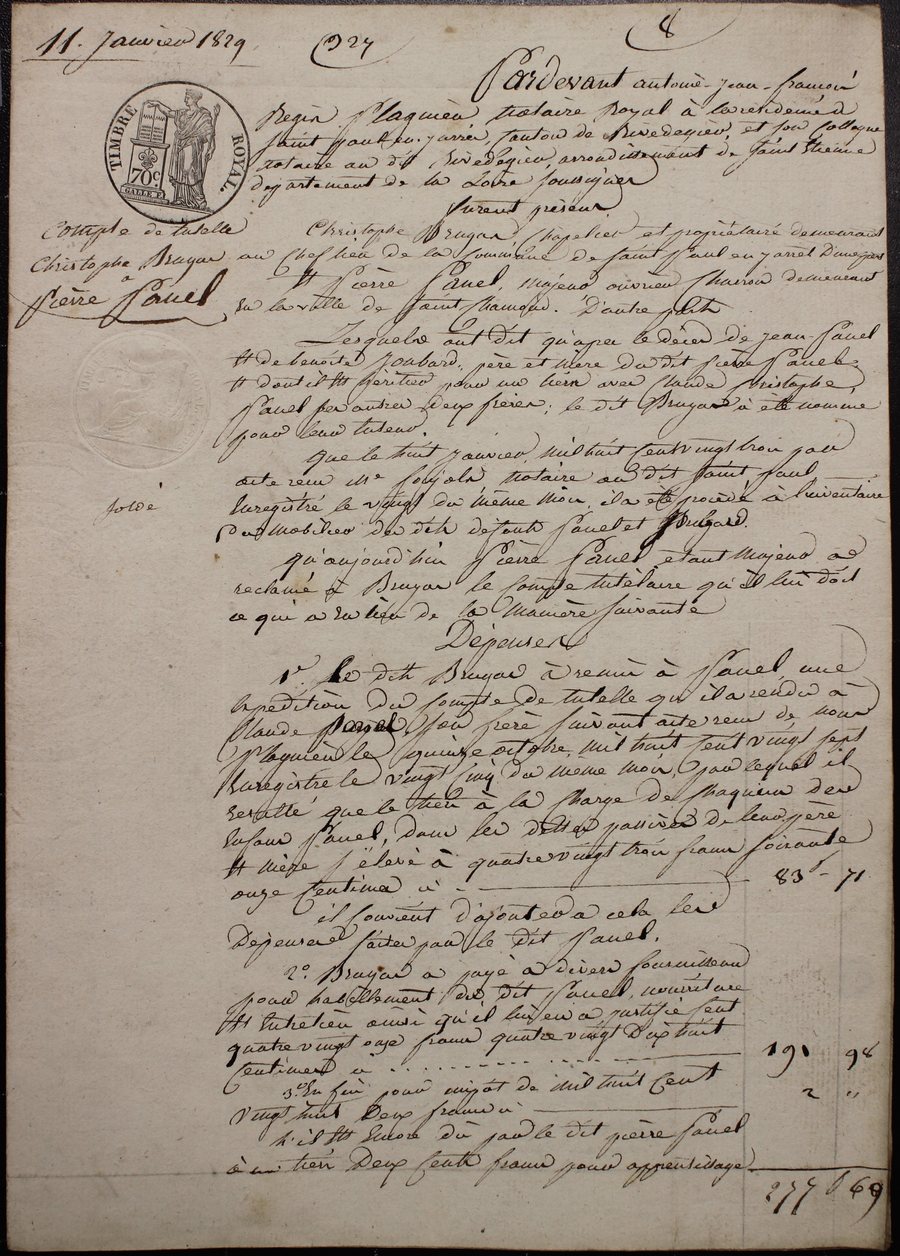 11. Janvier 1829
327
8
TIMBRE ROYAL
70c
Pardevant antoine-jean-francois
Régis Flaquièr, notaire Royal à la résidence de
saint paul-en-jarrez, canton de Rivedegier, et son Collegue
notaire au dit Rivedegier, arrondissement de Saint Etienne
département de la Loire soussignés
furent présens
Compte de tutelle
Christophe Bruyas
à
Pierre Panel
Christophe Bruyas, Chapelier et propriétaire demeurant
au Chef lieu de la Commune de Saint Paul en jarret D'une part
Et Pierre Panel, majeur ouvrier Charron demeurant
en la ville de Saint Chamond. D'autre part
Lesquels ont dit qu'apres le décès de jean Panel
Et de benoite Joubard, père et mère du dit pierre Panel
Et dont il Est héritier pour un tiers avec Claude Cristophe
Panel ses autres deux frères; le dit Bruyas à été nommé
pour leur tuteur
que le huit janvier mil huit cent vingt trois par
acte reçu Me notaire au dit Saint Paul
Enregistré le vingt du même mois, il a été procédé à l'inventaire
Du mobilier des dits défunts Panel et
soldé
qu'aujourd'hui Pierre Panel etant Majeur a
reclamé à Bruyas le compte tutélaire qu'il lui doit
ce qui a eu lieu de la Manière suivante
Dépenses
1° Le dit Bruyas à remis à Panel une
Expedition du compte de tutelle qu'il a rendu à
Claude Panel son frère suivant acte reçu de nous
Flaquièr le quinze octobre mil huit cent vingt sept
Enregistré le vingt cinq du même mois, par lequel il
résulte que le tiers à la charge de chaquun des
Enfans Panel, dans les dettes passives de leurs père
Et mère s'élevè à quatre vingt trois francs soixante
onze centimes ci 83f - 71
il convient d'ajouter a cela les
Dépenses faites par le dit Panel.
2° Bruyas a payé a divers fournisseurs
pour habillement du dit Panel, nourriture
Et Entretien ainsi qu'il lui en a justifié Cent
quatre vingt onze francs quatre vingt Dix huit
Centimes ci 191 98
3° En fin pour impôt de mil huit Cent
vingt huit Deux francs ci 2 "
Est Encore dû par le dit pierre Panel
à un tiers Deux Cents francs pour apprentissage
277f 69